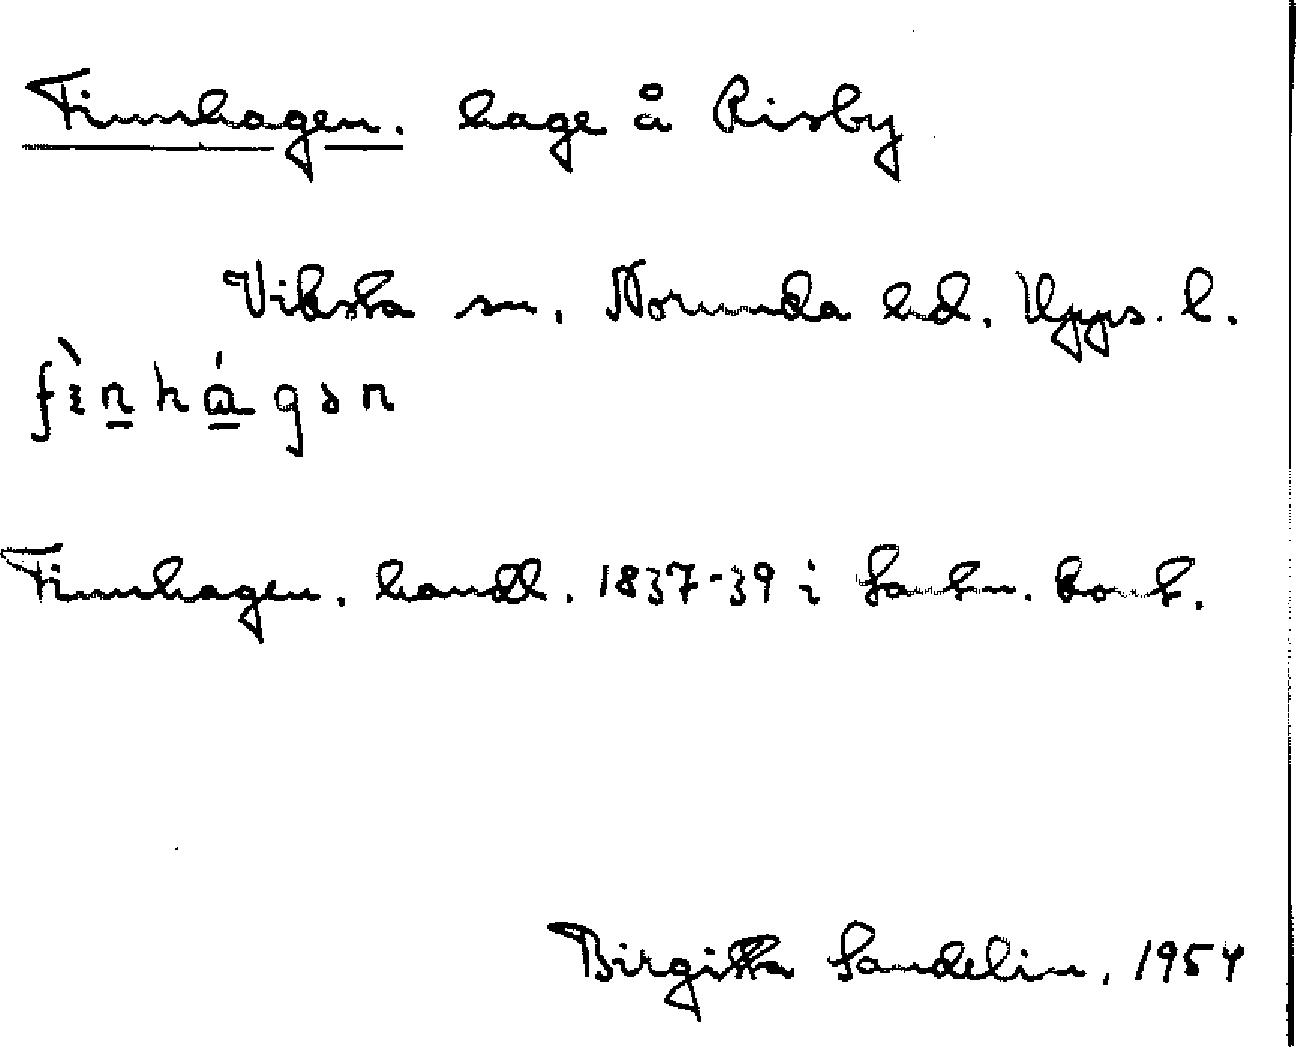 Finnhagen. hage å Risby
Viksta sn. Norunda hd. Upps. l.
fìnhágən
Finnhagen. handl. 1837-39 i Lantm. kont.
Birgitta Sandelin, 1954